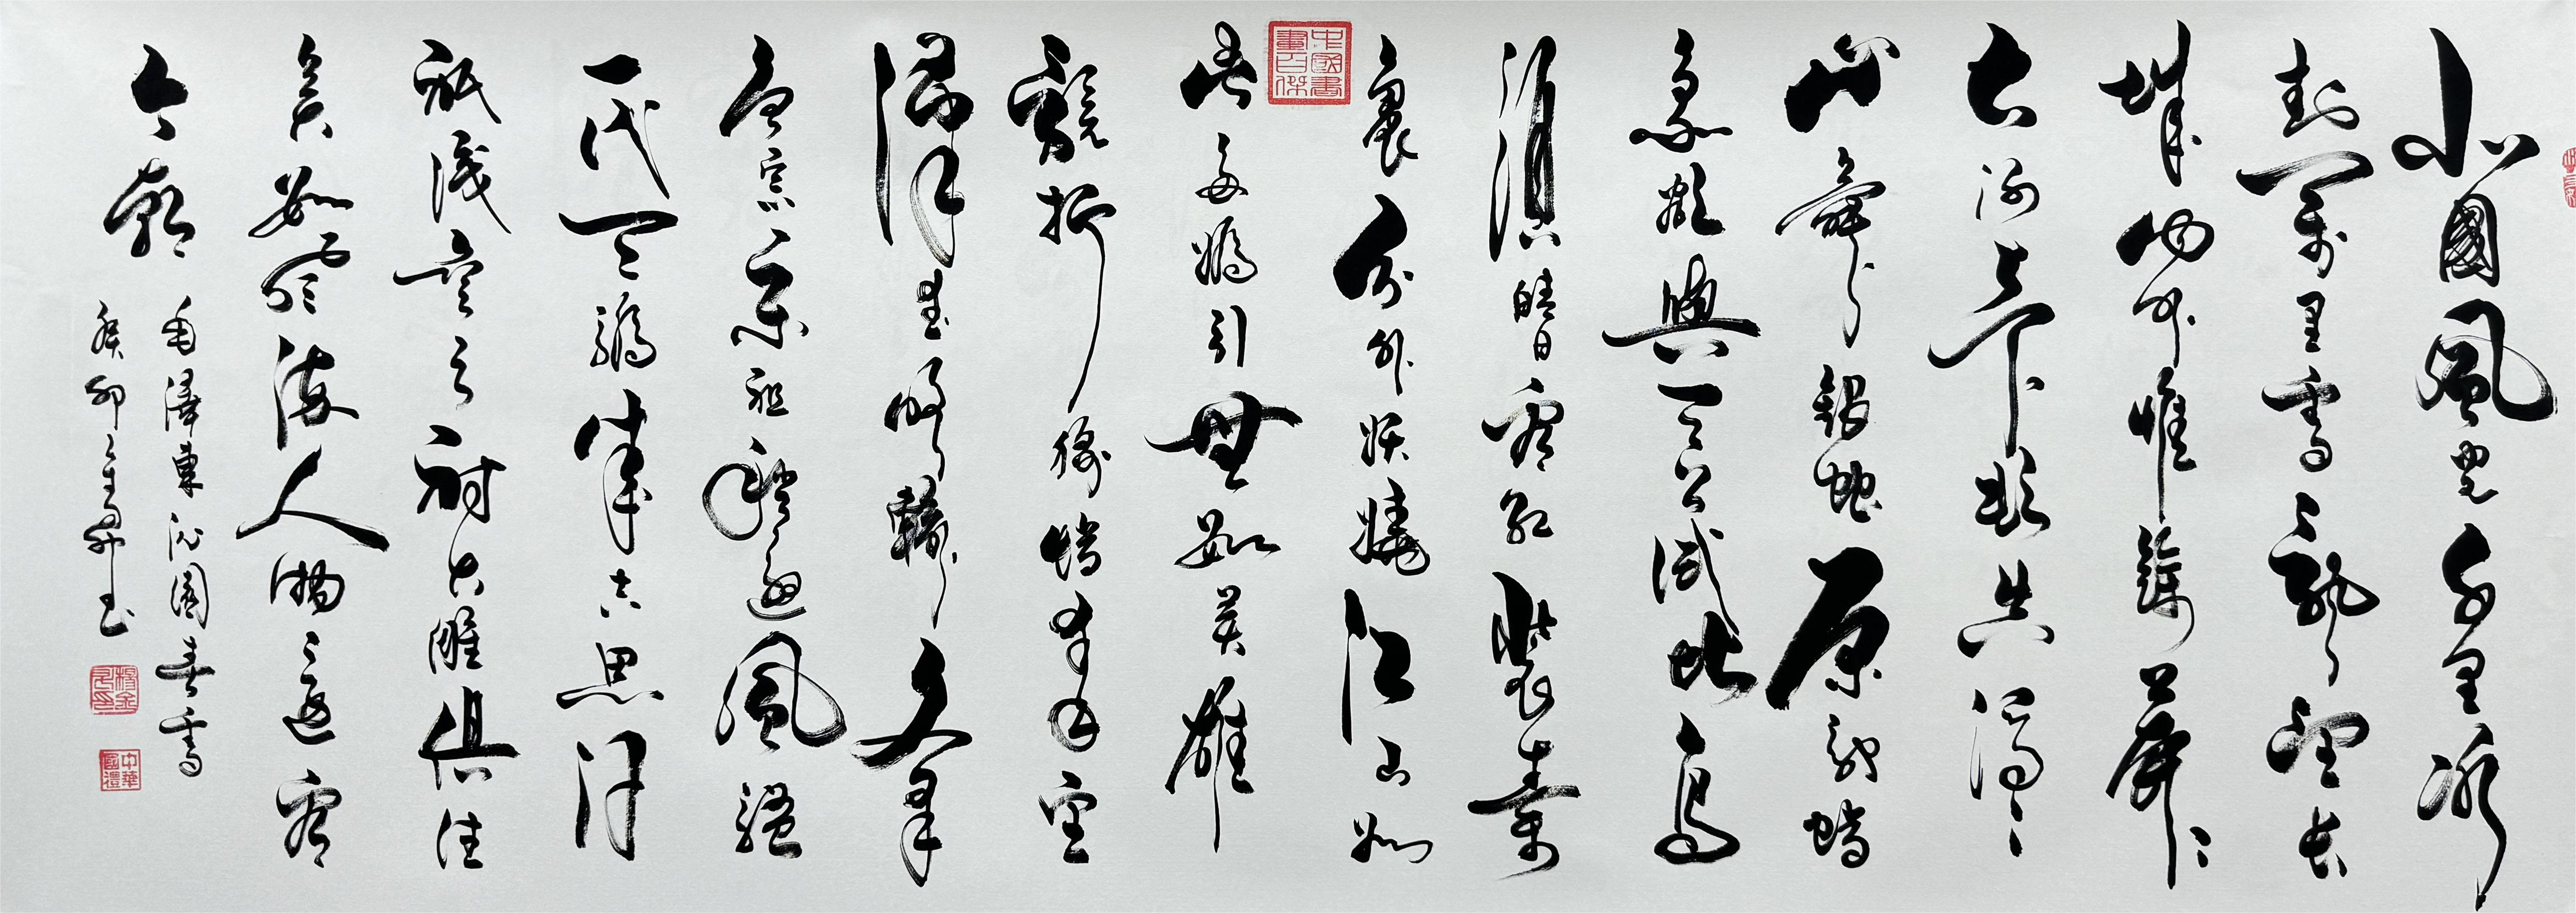 北國風光千里冰
封萬里雪飄望長
城內外惟餘莽莽
大河上下頓失滔滔
山舞銀蛇原馳蠟
象欲與天公試比高
須晴日看紅裝素
裹分外妖嬈江山如
此多嬌引無數英雄
競折腰惜秦皇
漢武略輸文采
唐宗宋祖稍遜風騷
一代天驕成吉思汗
祇識彎弓射大雕俱往
矣數風流人物還看
今朝
毛澤東沁園春雪
癸卯
中國書畫百傑
中華國禮